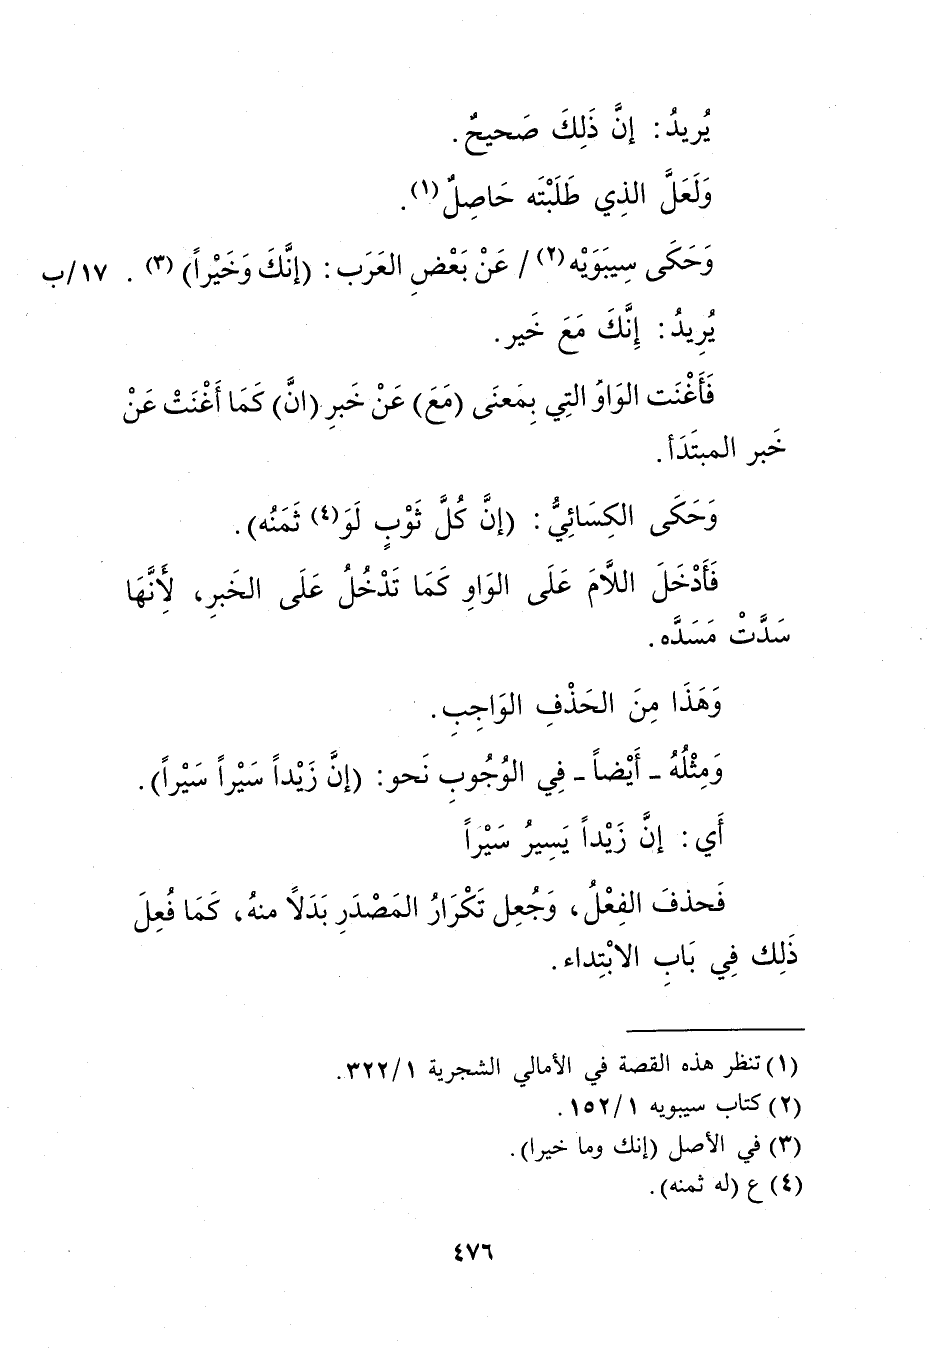 يُريدُ: إنَّ ذَلِكَ صَحيحٌ.
وَلَعَلَّ الذِي طَلَبْتَه حَاصِلٌ(١).
وَحَكَى سِيبَوَيْه(٢)/ عَنْ بَعْضِ العَرَب: (إنَّكَ وَخَيْراً)(٣). ١٧/ب
يُرِيدُ: إِنَّكَ مَعَ خَير.
فَأَغْنَت الوَاوُ التِي بِمَعنَى (مَعَ) عَنْ خَبرِ (انَّ) كَمَا أَغْنَتْ عَنْ
خَبر المبتَدَأ.
وَحَكَى الكِسَائِيُّ: (إنَّ كُلَّ ثَوْبٍ لَوَ(٤) ثَمَنُه).
فَأَدْخَلَ اللَّامَ عَلَى الوَاوِ كَمَا تَدْخُلُ عَلَى الخَبرِ، لأَنَّهَا
سَدَّتْ مَسَدَّه.
وَهَذَا مِنَ الحَذْفِ الوَاجِبِ.
وَمِثْلُهُ - أَيْضاً - فِي الوُجُوبِ نَحو: (إنَّ زَيْداً سَيْراً سَيْراً).
أَي: إنَّ زَيْداً يَسِيرُ سَيْراً
فَحذفَ الفِعْلُ، وَجُعِل تَكْرَارُ المَصْدَرِ بَدَلاً منهُ، كَمَا فُعِلَ
ذَلِك فِي بَابِ الابْتِداء.
(١) تنظر هذه القصة في الأمالي الشجرية ٣٢٢/١.
(٢) كتاب سيبويه ١٥٢/١.
(٣) في الأصل (إنك وما خيرا).
(٤) ع (له ثمنه).
٤٧٦